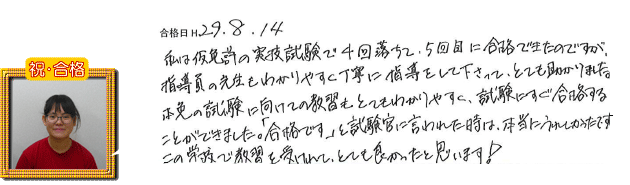 合格日 H.29.8.14
私は仮免許の実技試験で4回落ちて、5回目に合格できたのですが、
指導員の先生もわかりやすく丁寧に指導をして下さって、とても助かりました。
本免の試験に向けての教習も、とてもわかりやすく、試験にすぐ合格する
ことができました。「合格です」と試験官に言われた時は、本当にうれしかったです
この学校で教習を受けれて、とても良かったと思います!
祝・合格